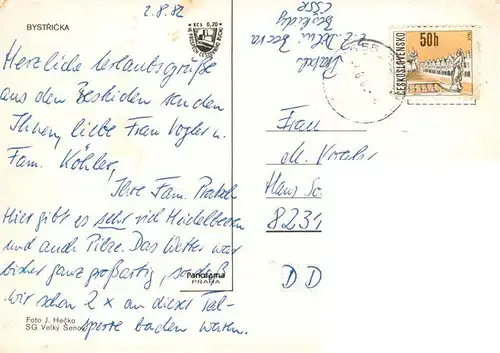 BYSTŘIČKA
2.8.82
Kčs 0,20
Herzliche Urlaubsgrüße
aus den Beskiden senden
Ihnen, liebe Frau Vogler u.
Fam. Köhler,
Ihre Fam.
Hier gibt es sehr viel Heidelbeeren
und auch Pilze. Das Wetter war
bisher ganz großartig, so daß
wir schon 2 x an dieser Tal-
sperre baden waren.
Panorama
PRAHA
Foto J. Hečko
SG Velký Šenov
Beskydy
ČSSR
ČESKOSLOVENSKO
50h
Frau
M.
Haus
8231
DD